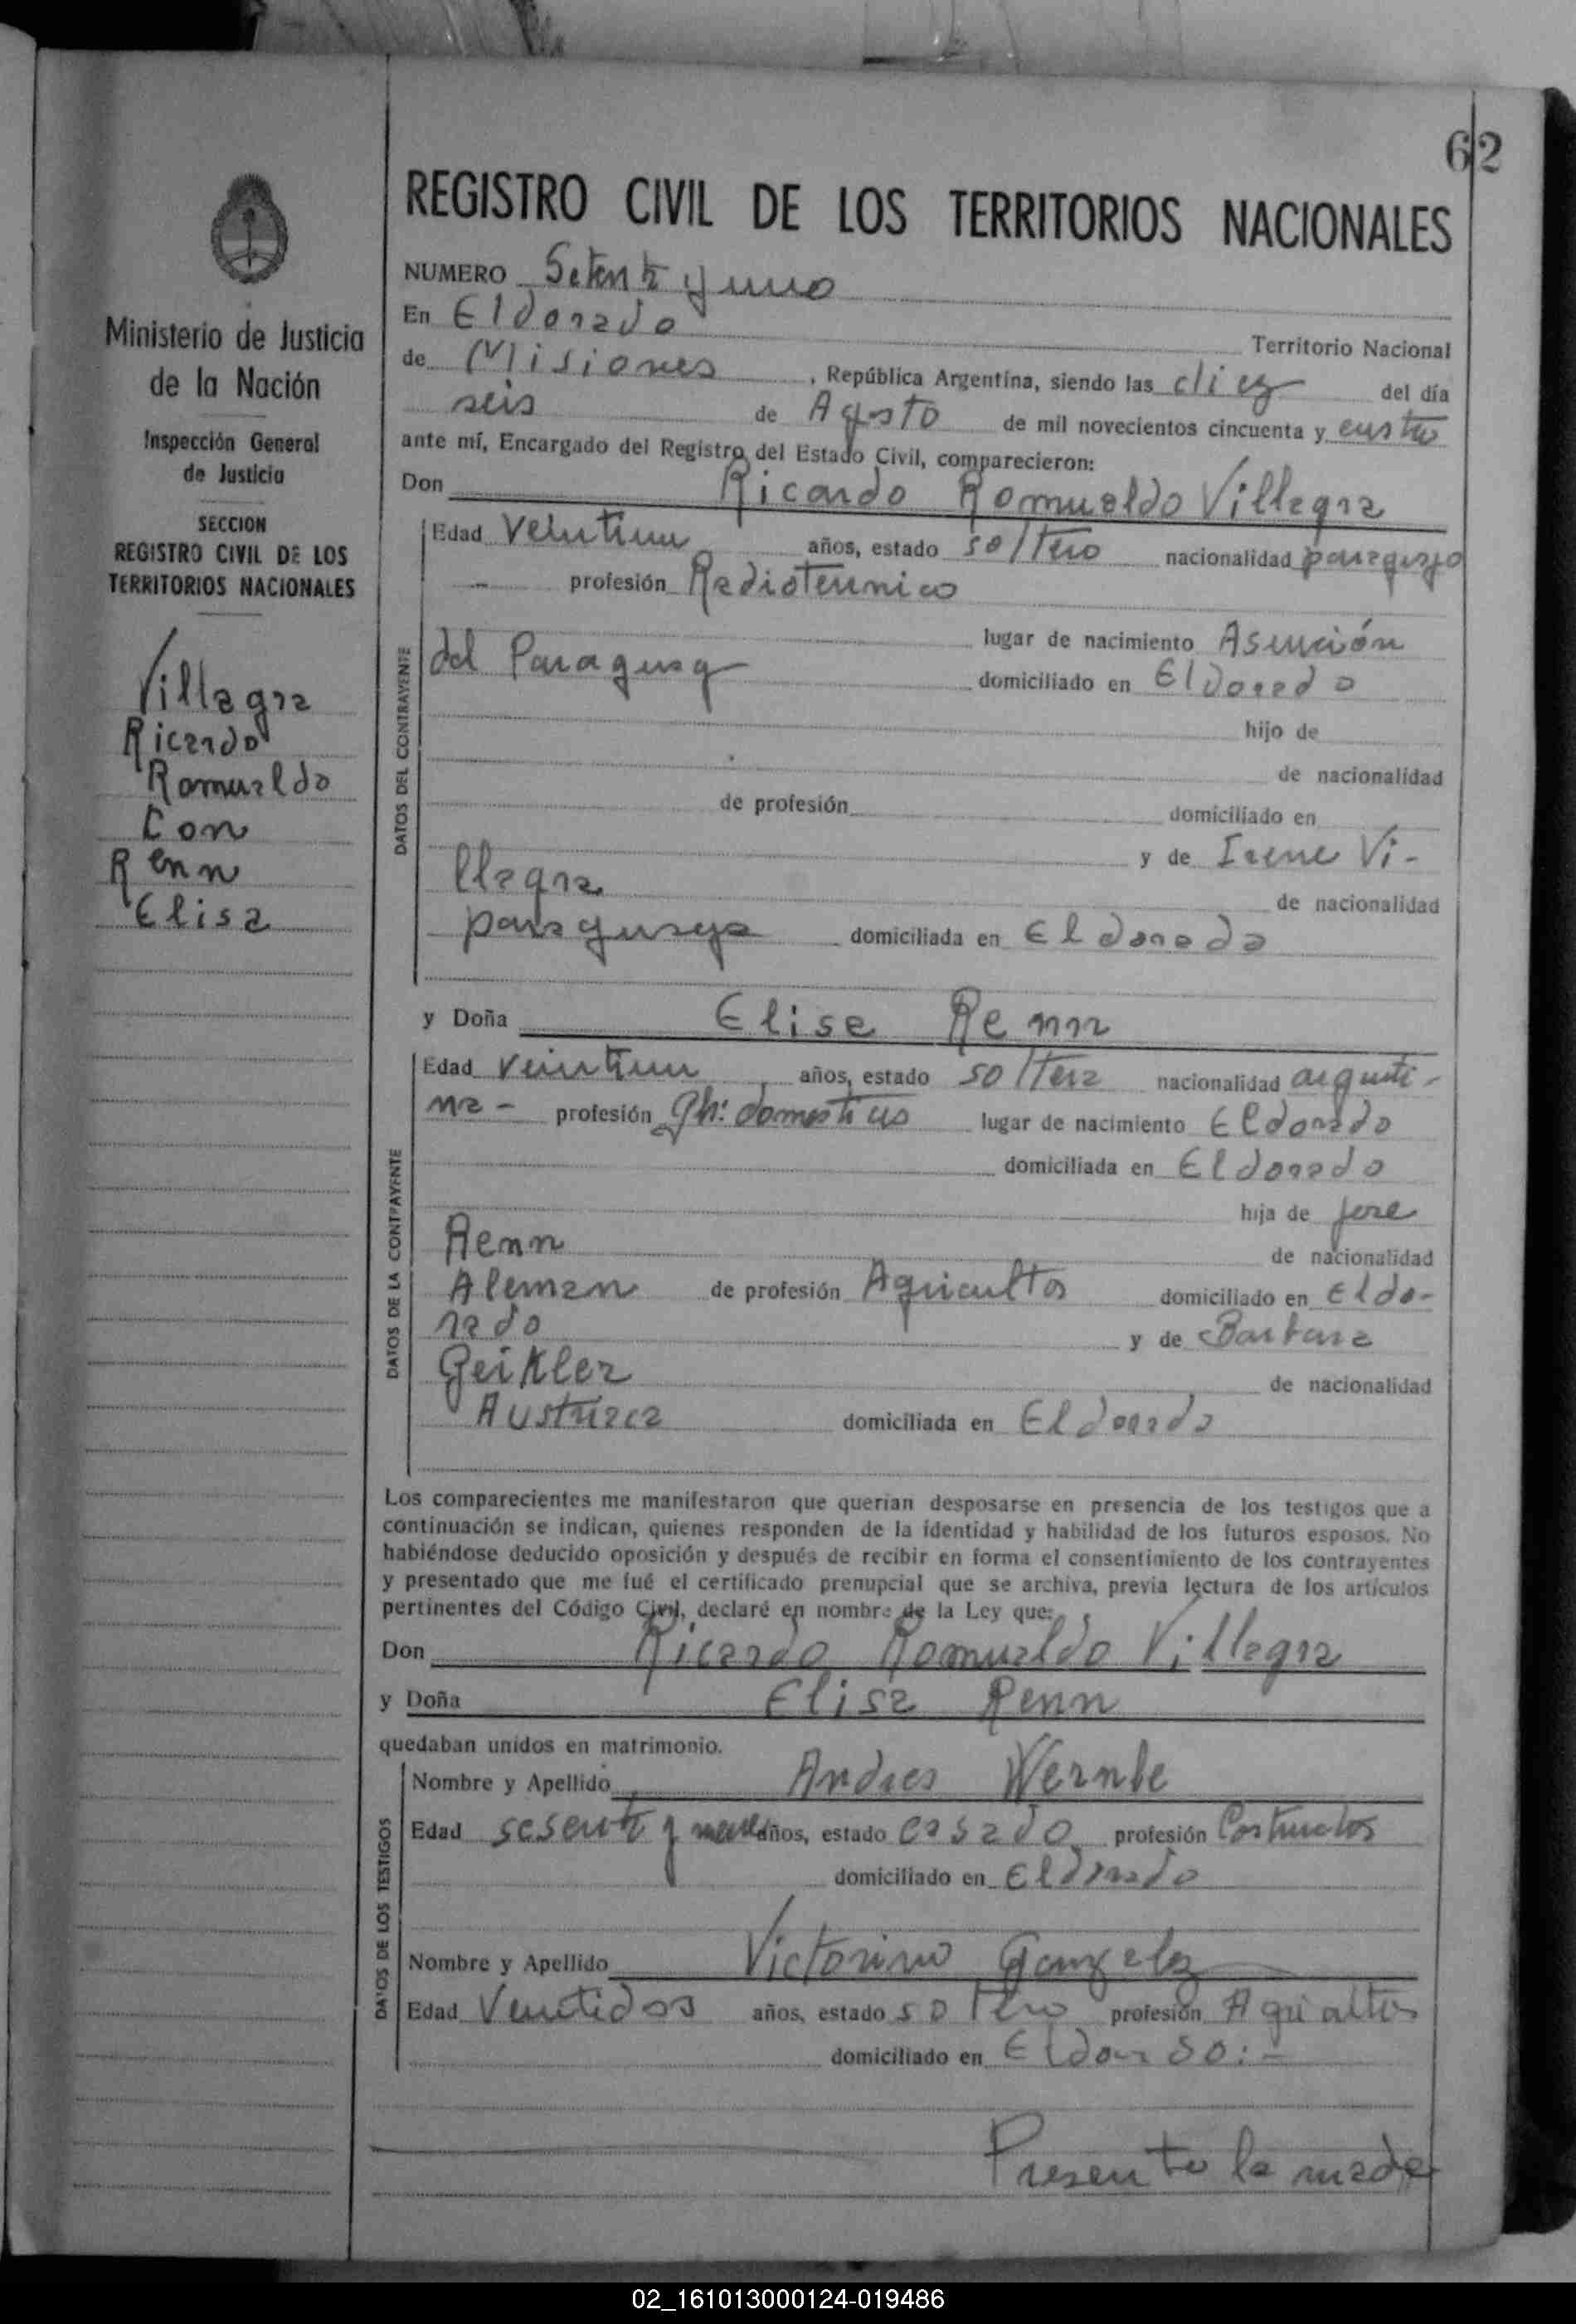 62
REGISTRO CIVIL DE LOS TERRITORIOS NACIONALES
Ministerio de Justicia
de la Nación
Inspección General
de Justicia
SECCION
REGISTRO CIVIL DE LOS
TERRITORIOS NACIONALES
Villagra
Ricardo
Romualdo
Con
Renn
Elisa
NUMERO Setenta y uno
En Eldorado Territorio Nacional
de Misiones, República Argentina, siendo las diez del día
seis de Agosto de mil novecientos cincuenta y cuatro
ante mí, Encargado del Registro del Estado Civil, comparecieron:
Don Ricardo Romualdo Villagra
DATOS DEL CONTRAYENTE
Edad Veintiun años, estado soltero nacionalidad paraguayo
- profesión Radiotecnico
lugar de nacimiento Asunción
del Paraguay domiciliado en Eldorado
hijo de
de nacionalidad
de profesión domiciliado en
y de Irene Vi-
llagra de nacionalidad
paraguaya domiciliada en Eldorado
y Doña Elisa Renn
DATOS DE LA CONTRAYENTE
Edad Veintiun años, estado soltera nacionalidad argenti-
na - profesión Qh: domesticos lugar de nacimiento Eldorado
domiciliada en Eldorado
hija de Jose
Renn de nacionalidad
Aleman de profesión Agricultor domiciliado en Eldo-
rado y de Barbara
Geikler de nacionalidad
Austriaca domiciliada en Eldorado
Los comparecientes me manifestaron que querían desposarse en presencia de los testigos que a
continuación se indican, quienes responden de la identidad y habilidad de los futuros esposos. No
habiéndose deducido oposición y después de recibir en forma el consentimiento de los contrayentes
y presentado que me fué el certificado prenupcial que se archiva, previa lectura de los artículos
pertinentes del Código Civil, declaré en nombre de la Ley que:
Don Ricardo Romualdo Villagra
y Doña Elisa Renn
quedaban unidos en matrimonio.
DATOS DE LOS TESTIGOS
Nombre y Apellido Andres Wernle
Edad sesenta y nueve años, estado casado profesión
domiciliado en Eldorado
Nombre y Apellido Victorino Gonzalez
Edad Veintidos años, estado soltero profesión Agricultor
domiciliado en Eldorado:-
Presente la madre
02_161013000124-019486